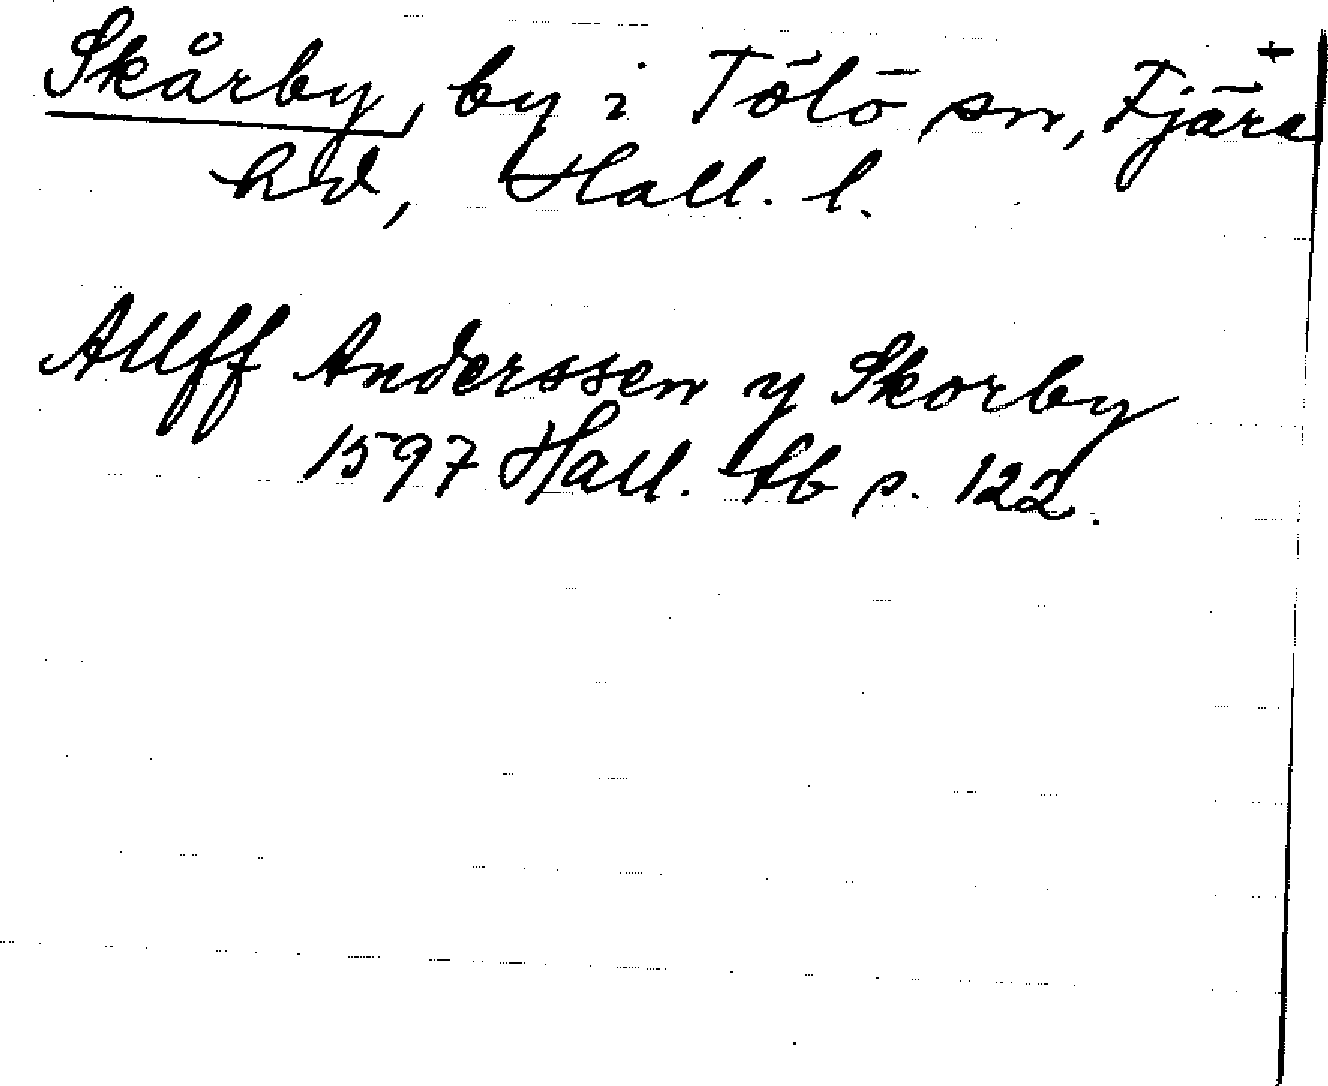 Skårby, by i Tölö sn, Fjära +
hd, Hall. l.
Allff Anderssen y Skorby
1597 Hall. tb p. 122.